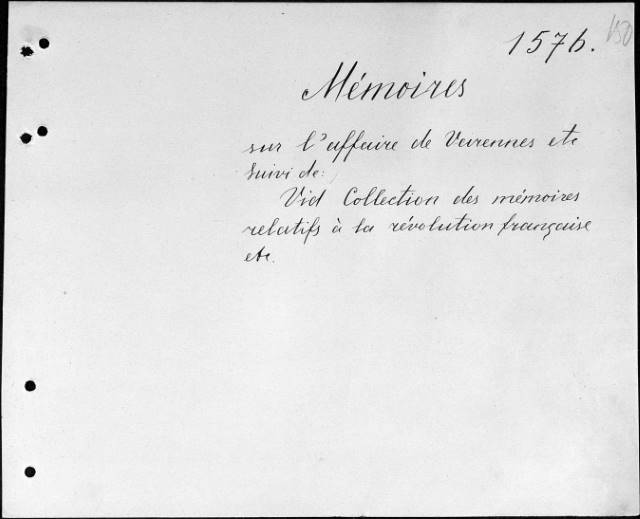 150
1576.
Mémoires
sur l'affaire de Varennes etc
suivi de:
Vid Collection des mémoires
relatifs à la révolution française
etc.